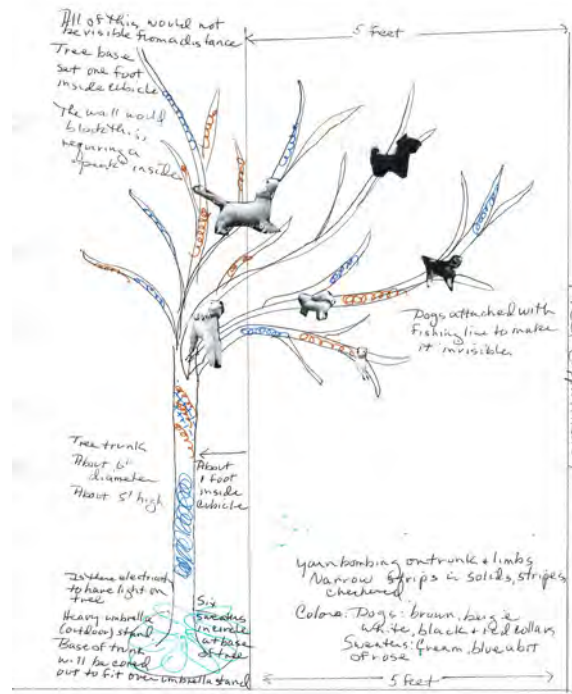 All of this would not
be visible from a distance
5 feet
Tree base
set one foot
inside cubicle
The wall would
block this,
requiring a
"peak" inside
Dogs attached with
fishing line to make
it invisible
Tree trunk
About 6"
diameter
About 5' high
About
1 foot
inside
cubicle
Is there electricity
to have light on
tree
Heavy umbrella
(outdoor) stand
Base of trunk
will be cored
out to fit over umbrella stand
Six
sweaters
in circle
at base
of tree
yarn bombing on trunk + limbs
Narrow strips in solids, stripes,
checkered
Colors: Dogs: brown, beige
white, black + red collars
Sweaters: Cream, blue a bit
of rose
5 feet